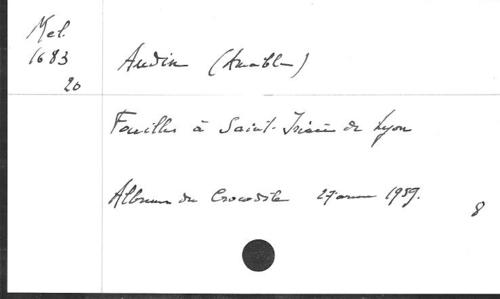 Mel.
1683
20
Audin (Amable)
Fouilles à Saint-Irénée de Lyon
Album du Crocodile 27 année 1959.
8